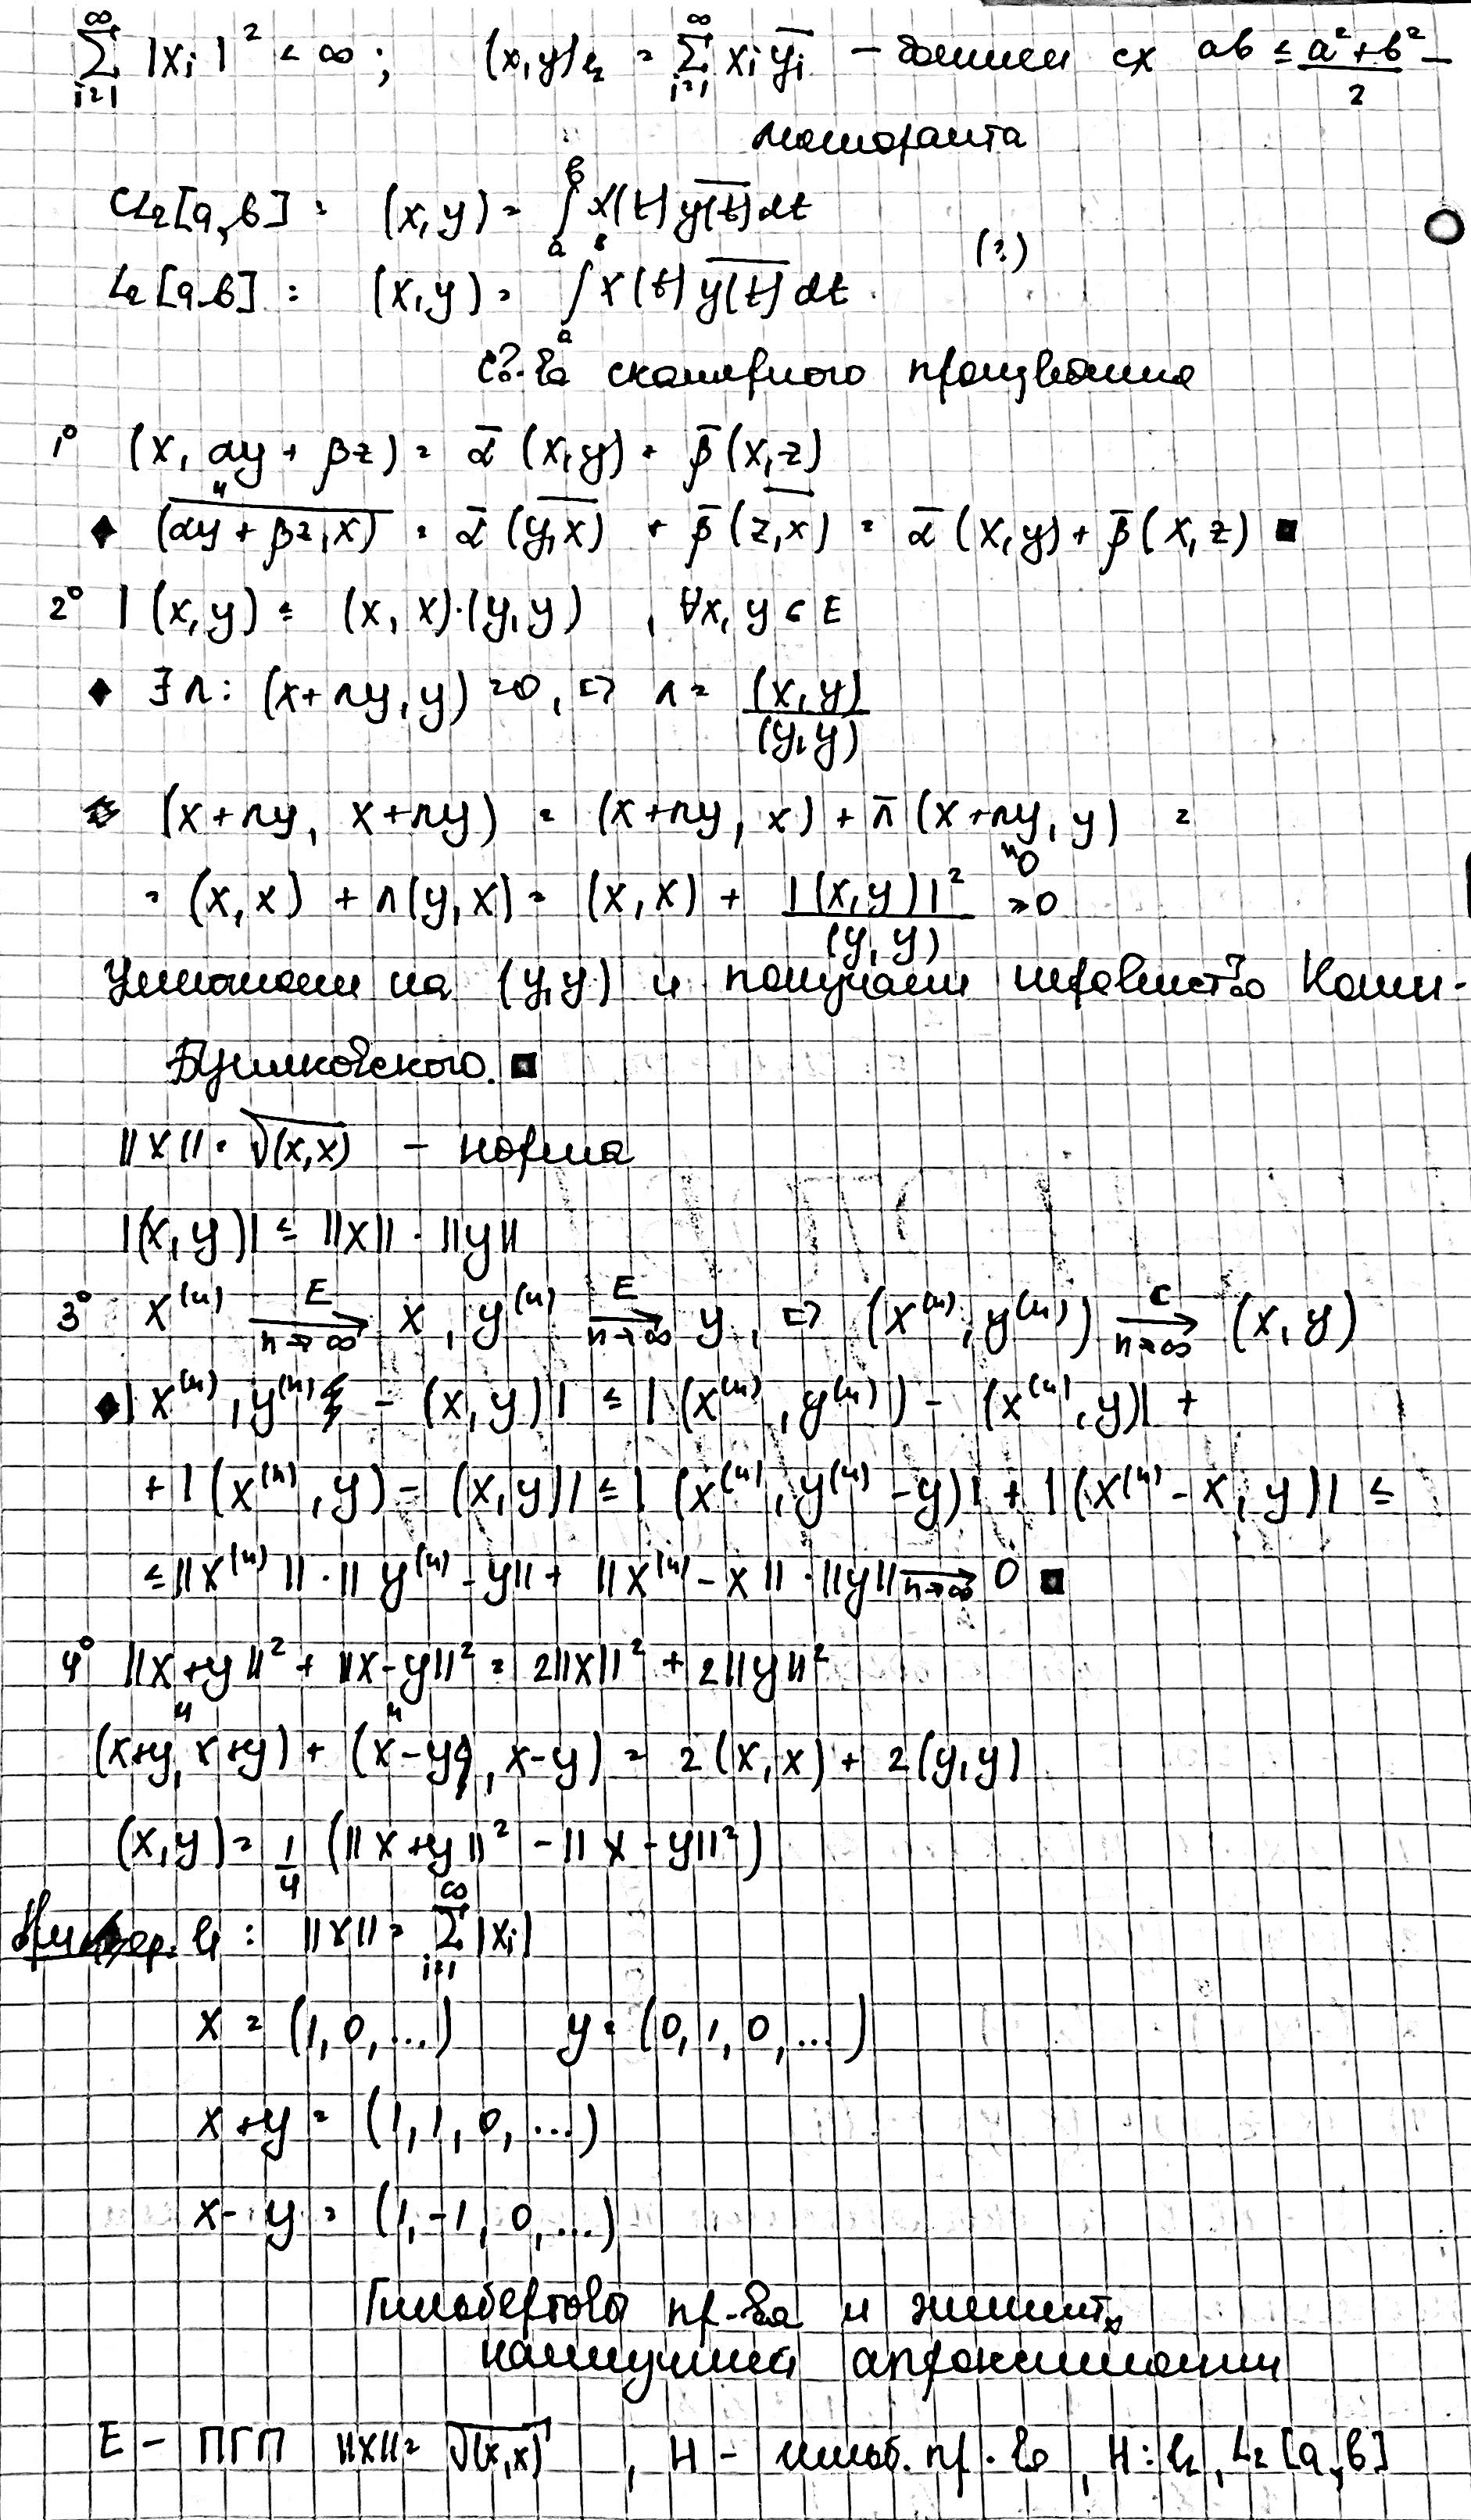 ∑_{i=1}^{∞} |x_i|² < ∞ ; (x,y)_{l₂} = ∑_{i=1}^{∞} x_i \overline{y_i} – ab ≤ \frac{a²+b²}{2} –
мажоранта
CL₂[a,b] : (x,y) = ∫_a^b x(t) \overline{y(t)} dt
L₂[a,b] : (x,y) = ∫_a^b x(t) \overline{y(t)} dt (?)
Св-ва скалярного произведения
1° (x, αy + βz) = \bar{α} (x,y) + \bar{β} (x,z)
♦ \overline{(αy + βz, x)} = \bar{α} \overline{(y,x)} + \bar{β} \overline{(z,x)} = \bar{α} (x,y) + \bar{β} (x,z) ■
2° |(x,y) ≤ (x,x)·(y,y) , ∀x, y ∈ E
♦ ∃λ: (x+λy, y) = 0, ⇒ λ = \frac{(x,y)}{(y,y)}
(x+λy, x+λy) = (x+λy, x) + \bar{λ} (x+λy, y) =
= (x,x) + λ(y,x) = (x,x) + \frac{|(x,y)|²}{(y,y)} ≥ 0
Умножаем на (y,y) и получаем неравенство Коши-
Буняковского. ■
||x|| = √(x,x) – норма
|(x,y)| ≤ ||x|| · ||y||
3° x^{(n)} \xrightarrow[n→∞]{E} x, y^{(n)} \xrightarrow[n→∞]{E} y, ⇒ (x^{(n)}, y^{(n)}) \xrightarrow[n→∞]{C} (x,y)
♦ | x^{(n)}, y^{(n)} – (x,y)| ≤ |(x^{(n)}, y^{(n)}) – (x^{(n)}, y)| +
+ |(x^{(n)}, y) – (x,y)| ≤ |(x^{(n)}, y^{(n)} – y)| + |(x^{(n)} – x, y)| ≤
≤ ||x^{(n)}|| · ||y^{(n)} – y|| + ||x^{(n)} – x|| · ||y|| \xrightarrow[n→∞]{} 0 ■
4° ||x+y||² + ||x–y||² = 2||x||² + 2||y||²
(x+y, x+y) + (x–y, x–y) = 2(x,x) + 2(y,y)
(x,y) = \frac{1}{4} (||x+y||² – ||x–y||²)
l₁ : ||x|| = ∑_{i=1}^{∞} |x_i|
x = (1, 0, ...) y = (0, 1, 0, ...)
x+y = (1, 1, 0, ...)
x–y = (1, –1, 0, ...)
Гильбертовы пр-ва и элемент
наилучшей апроксимации
E – ПГП ||x|| = √(x,x) , H – гильб. пр-во, H: l₂, L₂[a,b]